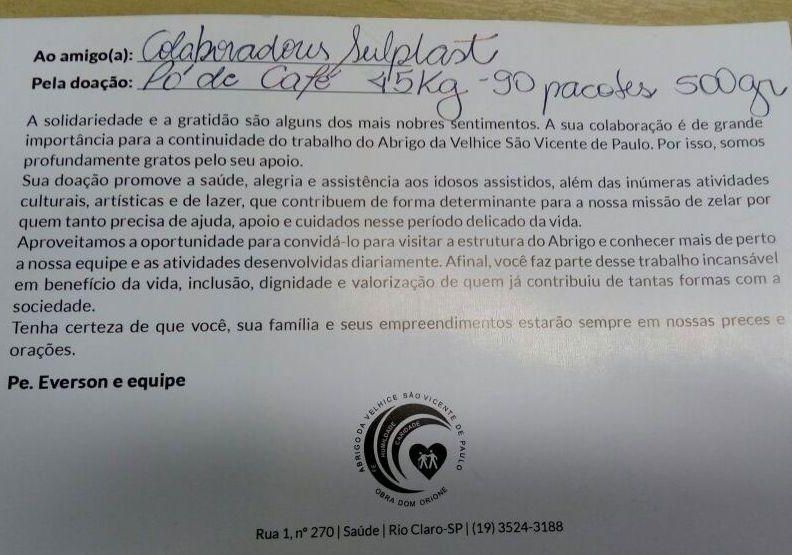 Ao amigo(a): Colaboradores Sulplast
Pela doação: Pó de Café 45Kg - 90 pacotes 500gr
A solidariedade e a gratidão são alguns dos mais nobres sentimentos. A sua colaboração é de grande
importância para a continuidade do trabalho do Abrigo da Velhice São Vicente de Paulo. Por isso, somos
profundamente gratos pelo seu apoio.
Sua doação promove a saúde, alegria e assistência aos idosos assistidos, além das inúmeras atividades
culturais, artísticas e de lazer, que contribuem de forma determinante para a nossa missão de zelar por
quem tanto precisa de ajuda, apoio e cuidados nesse período delicado da vida.
Aproveitamos a oportunidade para convidá-lo para visitar a estrutura do Abrigo e conhecer mais de perto
a nossa equipe e as atividades desenvolvidas diariamente. Afinal, você faz parte desse trabalho incansável
em benefício da vida, inclusão, dignidade e valorização de quem já contribuiu de tantas formas com a
sociedade.
Tenha certeza de que você, sua família e seus empreendimentos estarão sempre em nossas preces e
orações.
Pe. Everson e equipe
ABRIGO DA VELHICE SÃO VICENTE DE PAULO
FÉ HUMILDADE CARIDADE
OBRA DOM ORIONE
Rua 1, nº 270 | Saúde | Rio Claro-SP | (19) 3524-3188